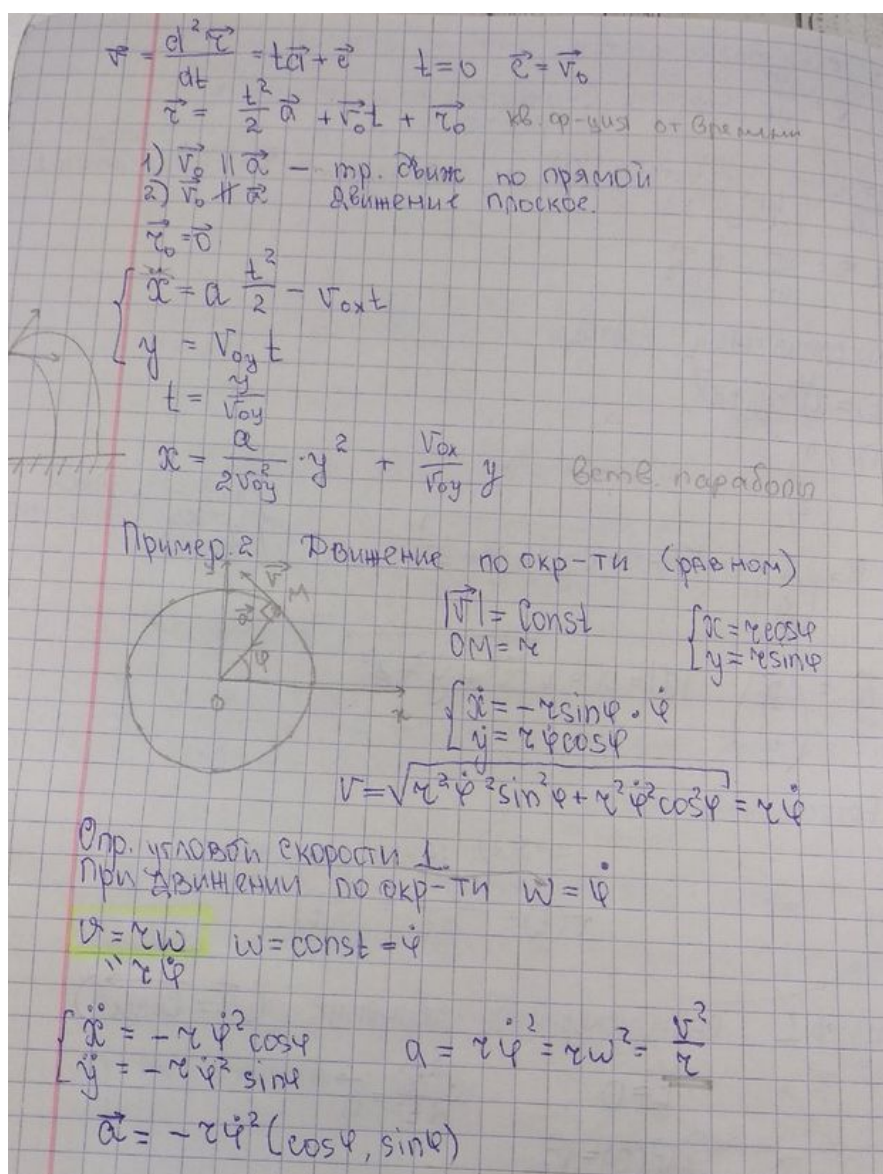 v⃗ = d²r⃗/dt = ta⃗ + c⃗   t=0   c⃗ = v⃗₀
r⃗ = t²/2 a⃗ + v⃗₀t + r⃗₀   кв. ф-ция от времени
1) v⃗₀ ∥ a⃗ – тр. движ по прямой
2) v⃗₀ ∦ a⃗   движение плоское.
r⃗₀ = 0⃗
ẍ = a t²/2 – v₀ₓt
y = v₀ᵧt
t = y/v₀ᵧ
x = a/2v₀ᵧ² · y² + v₀ₓ/v₀ᵧ y   ветв. параболы
Пример.2 Движение по окр-ти (равном)
y v⃗ M
|v⃗| = Const   x = r cosφ
a⃗
OM = r   y = r sinφ
φ
O x
ẋ = –r sinφ · φ̇
ẏ = rφ̇ cosφ
v = √r²φ̇² sin²φ + r²φ̇² cos²φ = rφ̇
Опр. угловой скорости 1
При движении по окр-ти w = φ̇
v = rw   w = const = φ̇
" rφ̇
ẍ = – rφ̇² cosφ   a = rφ̇² = rw² = v²/r
ÿ = – rφ̇² sinφ
a⃗ = – rφ̇² (cosφ, sinφ)